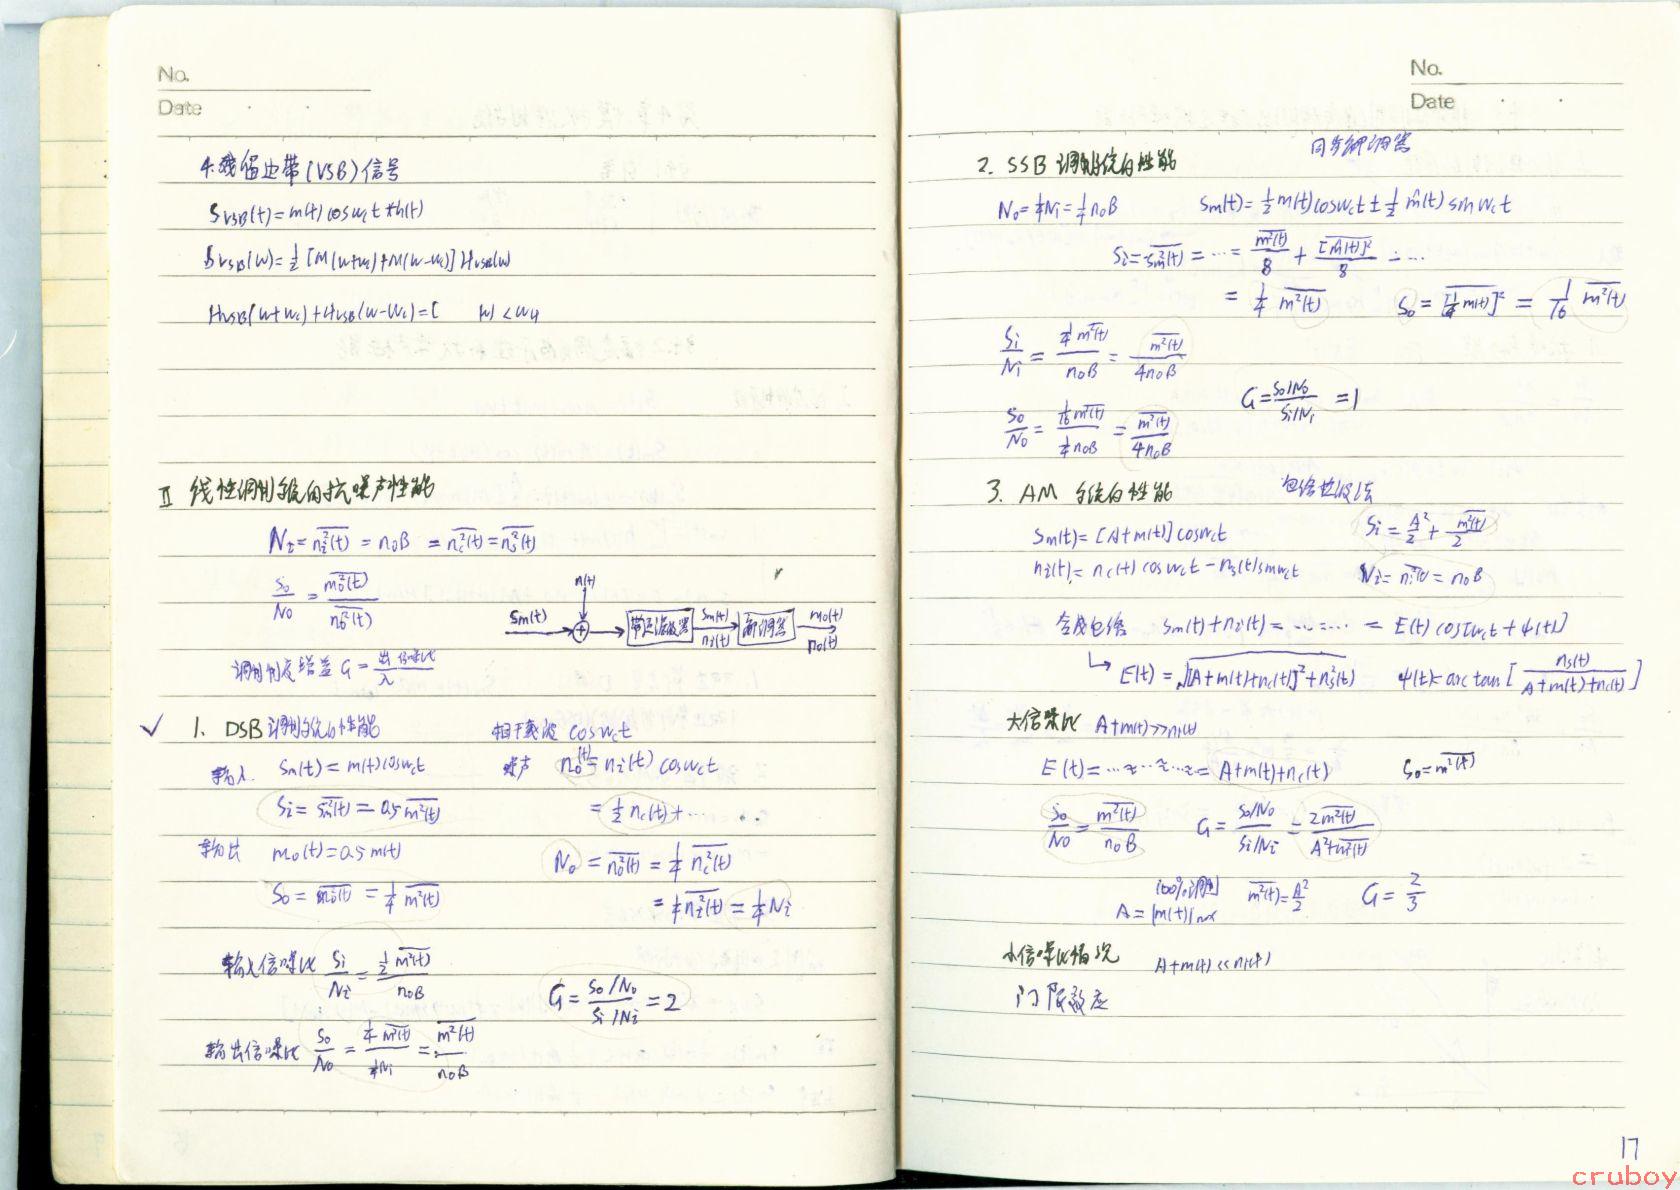 No.
Date
4.残留边带(VSB)信号
S_VSB(t)=m(t)cosω_ct*h(t)
S_VSB(ω)=½[M(ω+ω_c)+M(ω-ω_c)]H_VSB(ω)
H_VSB(ω+ω_c)+H_VSB(ω-ω_c)=C |ω|<ω_H
Ⅱ 线性调制系统的抗噪声性能
N_i=\overline{n_i²(t)}=n_0B=\overline{n_c²(t)}=\overline{n_s²(t)}
S_o/N_o=\overline{m_o²(t)}/\overline{n_o²(t)}
n(t)
S_m(t) + 带通滤波器 S_m(t) n_i(t) 解调器 m_o(t) n_o(t)
调制制度增益 G=出信噪比/入
✓ 1. DSB调制系统的性能 相干载波 cosω_ct
输入. S_m(t)=m(t)cosω_ct 噪声 n_o(t)=n_i(t)cosω_ct
S_i=\overline{S_m²(t)}=0.5\overline{m²(t)} =½n_c(t)+…
输出 m_o(t)=0.5m(t)
N_o=\overline{n_o²(t)}=¼\overline{n_c²(t)}
S_o=\overline{m_o²(t)}=¼\overline{m²(t)} =¼\overline{n_i²(t)}=¼N_i
输入信噪比 S_i/N_i=½\overline{m²(t)}/n_0B
G=(S_o/N_o)/(S_i/N_i)=2
输出信噪比 S_o/N_o=¼\overline{m²(t)}/¼N_i=\overline{m²(t)}/n_0B
No.
Date
2. SSB调制系统的性能 同步解调器
N_o=¼N_i=¼n_0B S_m(t)=½m(t)cosω_ct±½m̂(t)sinω_ct
S_i=\overline{S_m²(t)}=…=\overline{m²(t)}/8+\overline{[m̂(t)]²}/8=…
=¼\overline{m²(t)} S_o=\overline{[¼m(t)]²}=1/16\overline{m²(t)}
S_i/N_i=¼\overline{m²(t)}/n_0B=\overline{m²(t)}/4n_0B
G=(S_o/N_o)/(S_i/N_i)=1
S_o/N_o=1/16\overline{m²(t)}/¼n_0B=\overline{m²(t)}/4n_0B
3. AM 系统的性能 包络检波法
S_m(t)=[A+m(t)]cosω_ct S_i=A²/2+\overline{m²(t)}/2
n_i(t)=n_c(t)cosω_ct-n_s(t)sinω_ct N_i=\overline{n_i²(t)}=n_0B
合成包络 S_m(t)+n_i(t)=……=…=E(t)cos[ω_ct+ψ(t)]
↳ E(t)=√{[A+m(t)+n_c(t)]²+n_s²(t)} ψ(t)=arctan[n_s(t)/(A+m(t)+n_c(t))]
大信噪比 A+m(t)>>n_i(t)
E(t)=…≈…≈…≈A+m(t)+n_c(t) S_o=\overline{m²(t)}
S_o/N_o=\overline{m²(t)}/n_0B G=(S_o/N_o)/(S_i/N_i)=2\overline{m²(t)}/(A²+\overline{m²(t)})
100%调制 \overline{m²(t)}=A²/2 G=2/3
A=|m(t)|max
小信噪比情况 A+m(t)<<n_i(t)
门限效应
17
cruboy